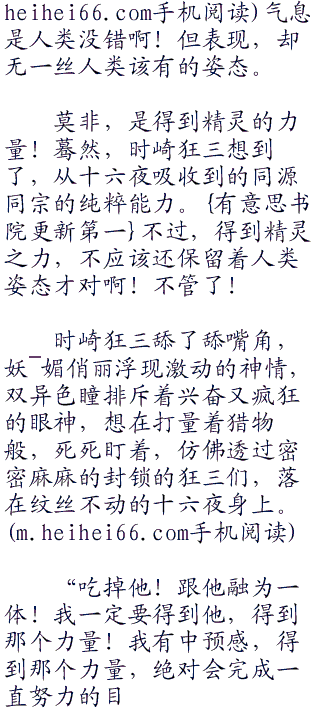 heihei66.com手机阅读)气息
是人类没错啊！但表现，却
无一丝人类该有的姿态。
莫非，是得到精灵的力
量！蓦然，时崎狂三想到
了，从十六夜吸收到的同源
同宗的纯粹能力。{有意思书
院更新第一}不过，得到精灵
之力，不应该还保留着人类
姿态才对啊！不管了！
时崎狂三舔了舔嘴角，
妖¯媚俏丽浮现激动的神情，
双异色瞳排斥着兴奋又疯狂
的眼神，想在打量着猎物
般，死死盯着，仿佛透过密
密麻麻的封锁的狂三们，落
在纹丝不动的十六夜身上。
(m.heihei66.com手机阅读)
“吃掉他！跟他融为一
体！我一定要得到他，得到
那个力量！我有中预感，得
到那个力量，绝对会完成一
直努力的目